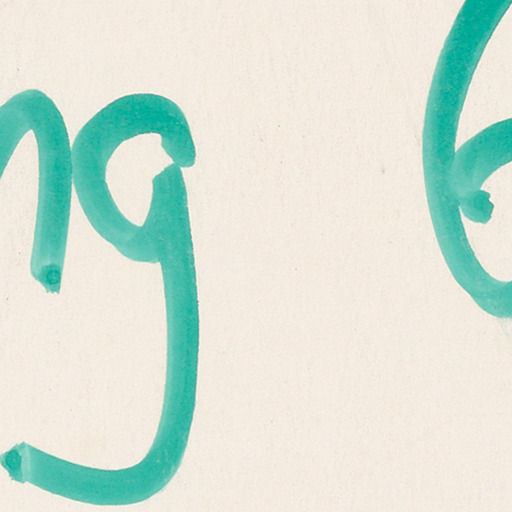 ng 6